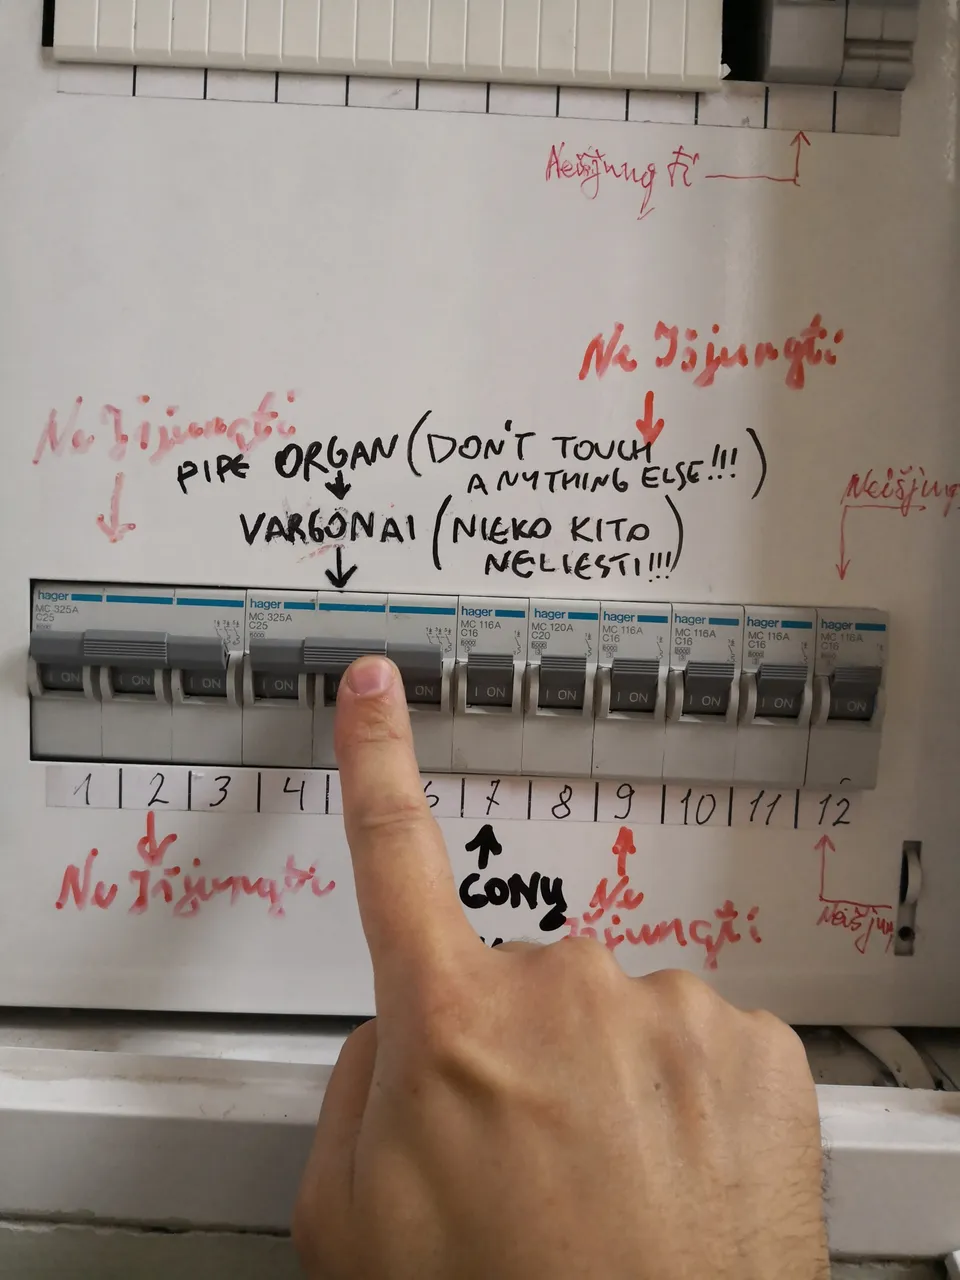 Neišjungti
Ne Išjungti
Ne Išjungti
PIPE ORGAN (DON'T TOUCH
ANYTHING ELSE!!!)
Neišjung
VARGONAI (NIEKO KITO
NELIESTI!!!)
hager
MC 325A
C25
6000
hager
MC 325A
C25
6000
hager
MC 116A
C16
6000
3
hager
MC 120A
C20
6000
3
hager
MC 116A
C16
6000
3
hager
MC 116A
C16
6000
3
hager
MC 116A
C16
6000
3
hager
MC 116A
C16
I ON I ON I ON I ON ON I ON I ON I ON I ON I ON I ON
1 2 3 4 6 7 8 9 10 11 12
Ne Išjungti
GONŲ
Ne
Išjungti
Neišjun